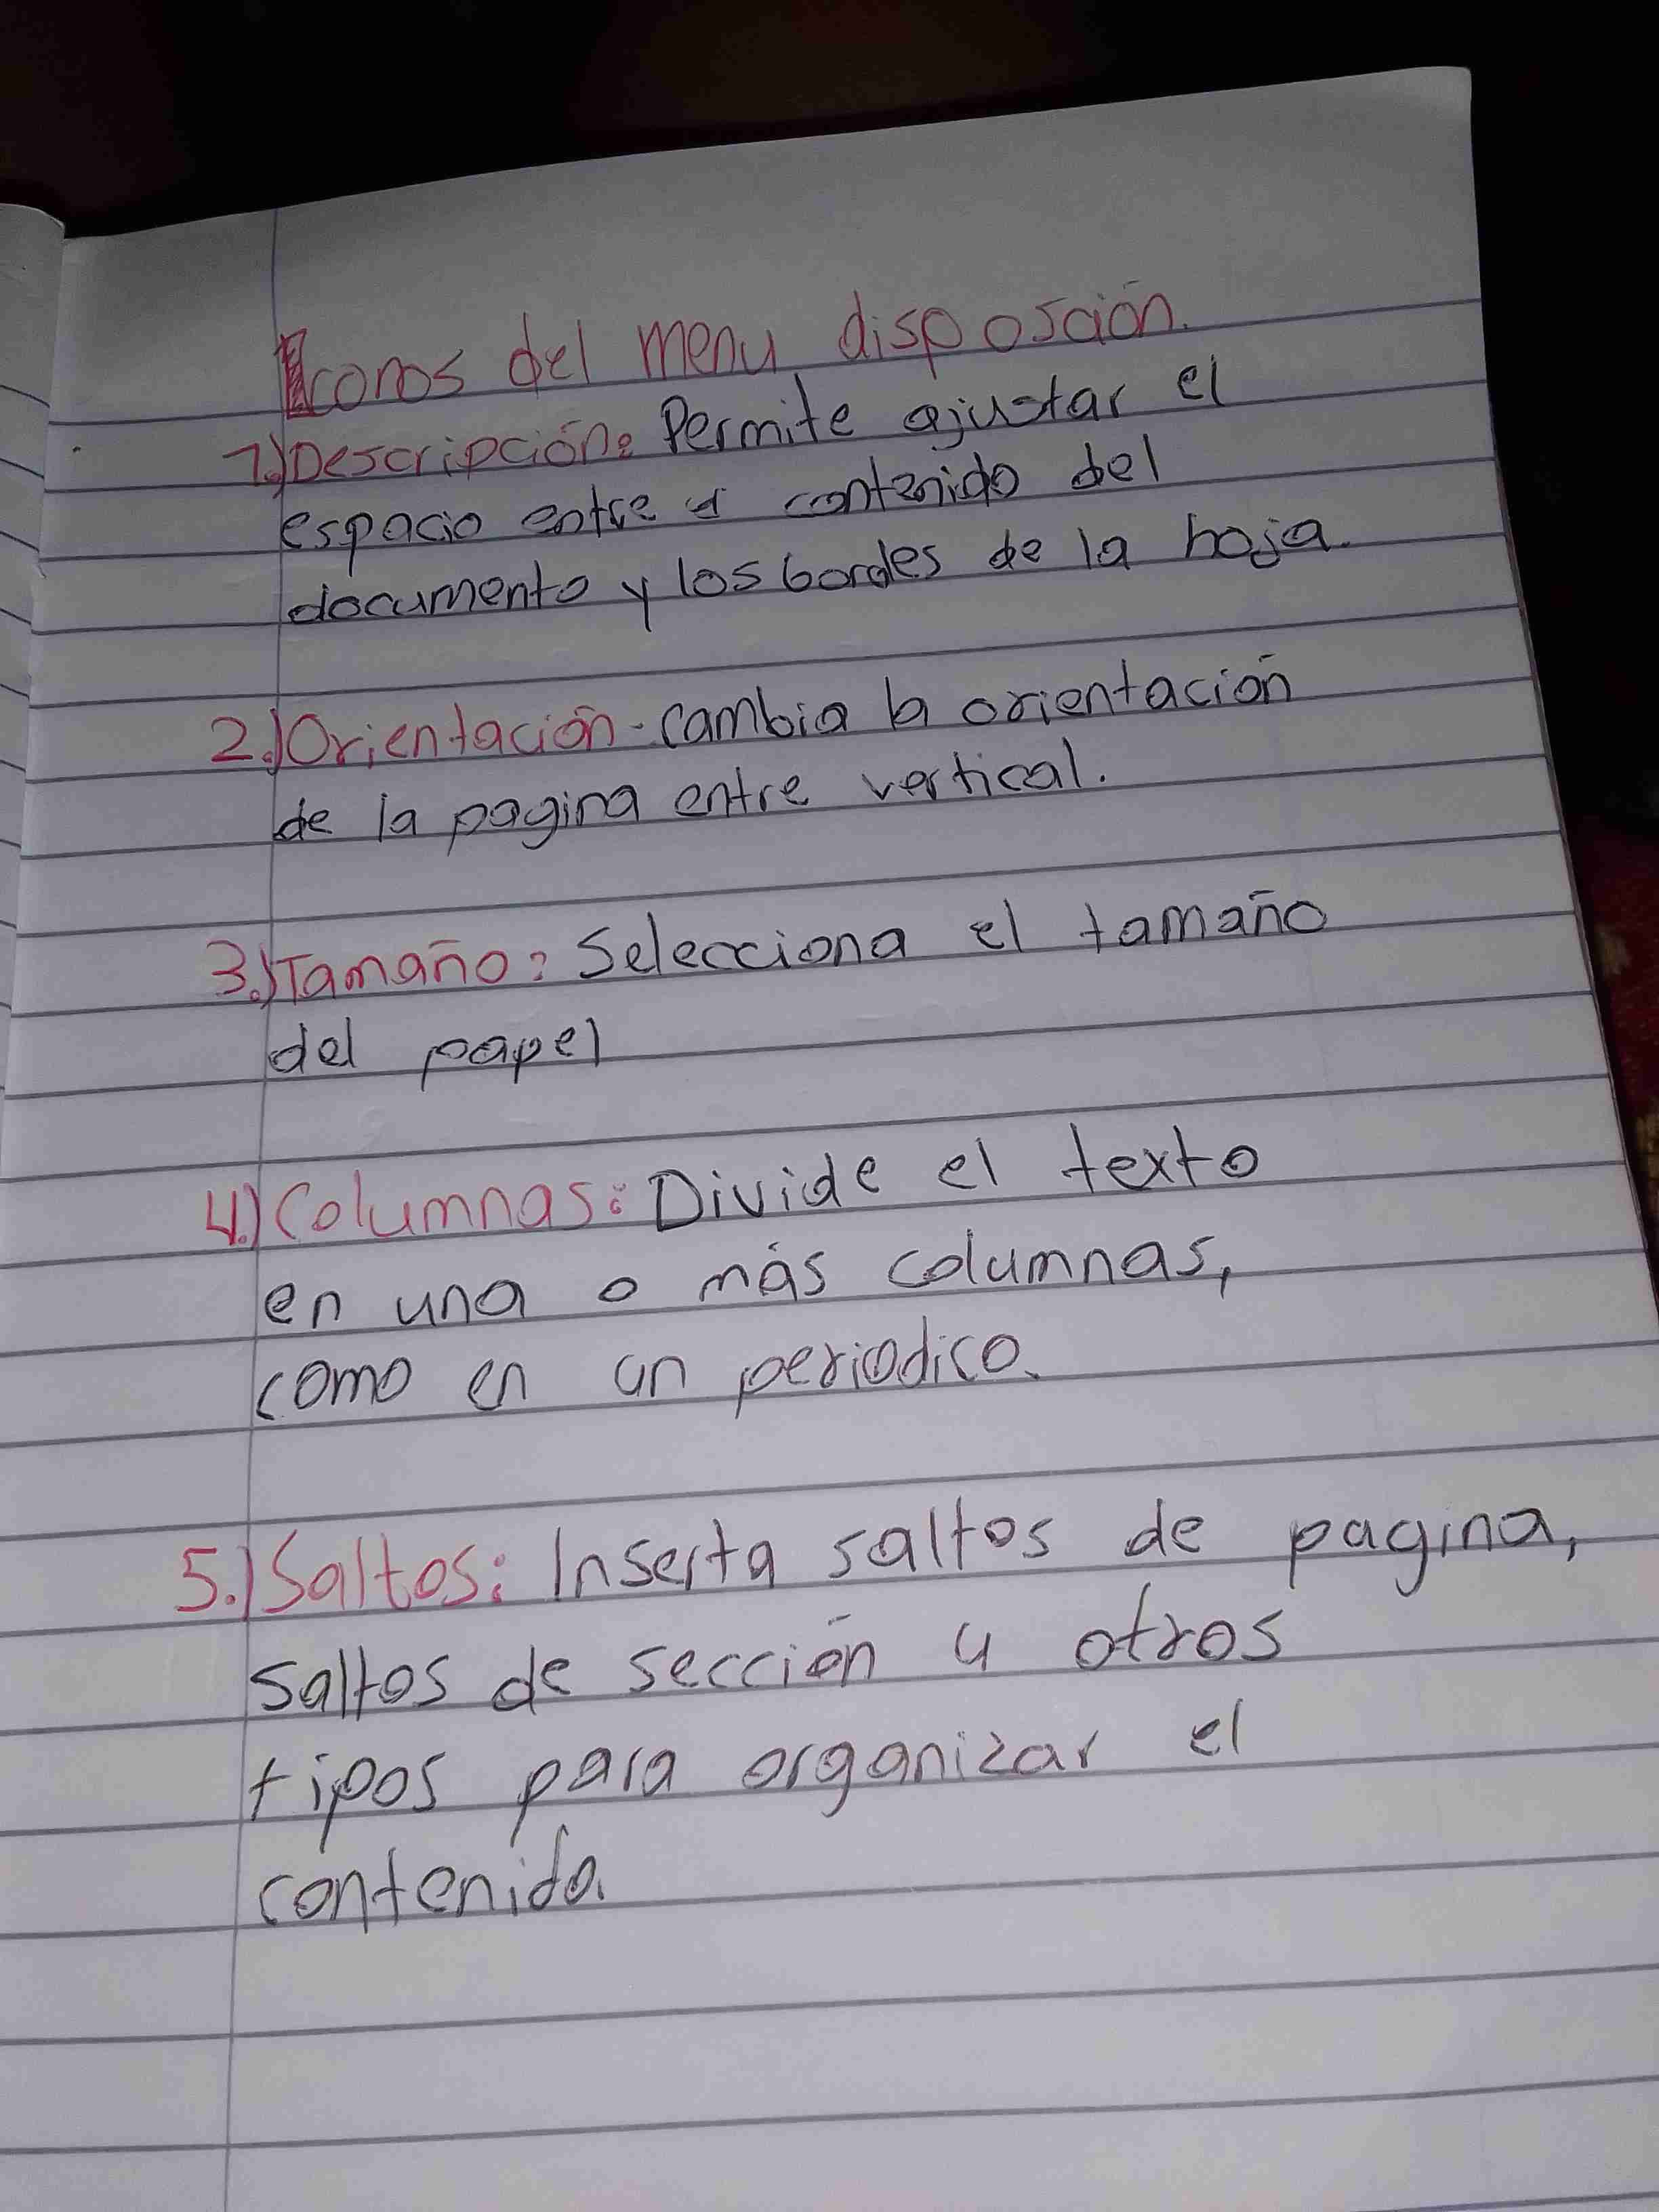 Iconos del menu disposción.
1.) Descripción: Permite ajustar el
espacio entre el contenido del
documento y los bordes de la hoja.
2.) Orientación. Cambia la orientación
de la pagina entre vertical.
3.) Tamaño: Selecciona el tamaño
del papel
4.) Columnas: Divide el texto
en una o más columnas,
como en un periodico.
5.) Saltos: Inserta saltos de pagina,
saltos de sección y otros
tipos para organizar el
contenido.